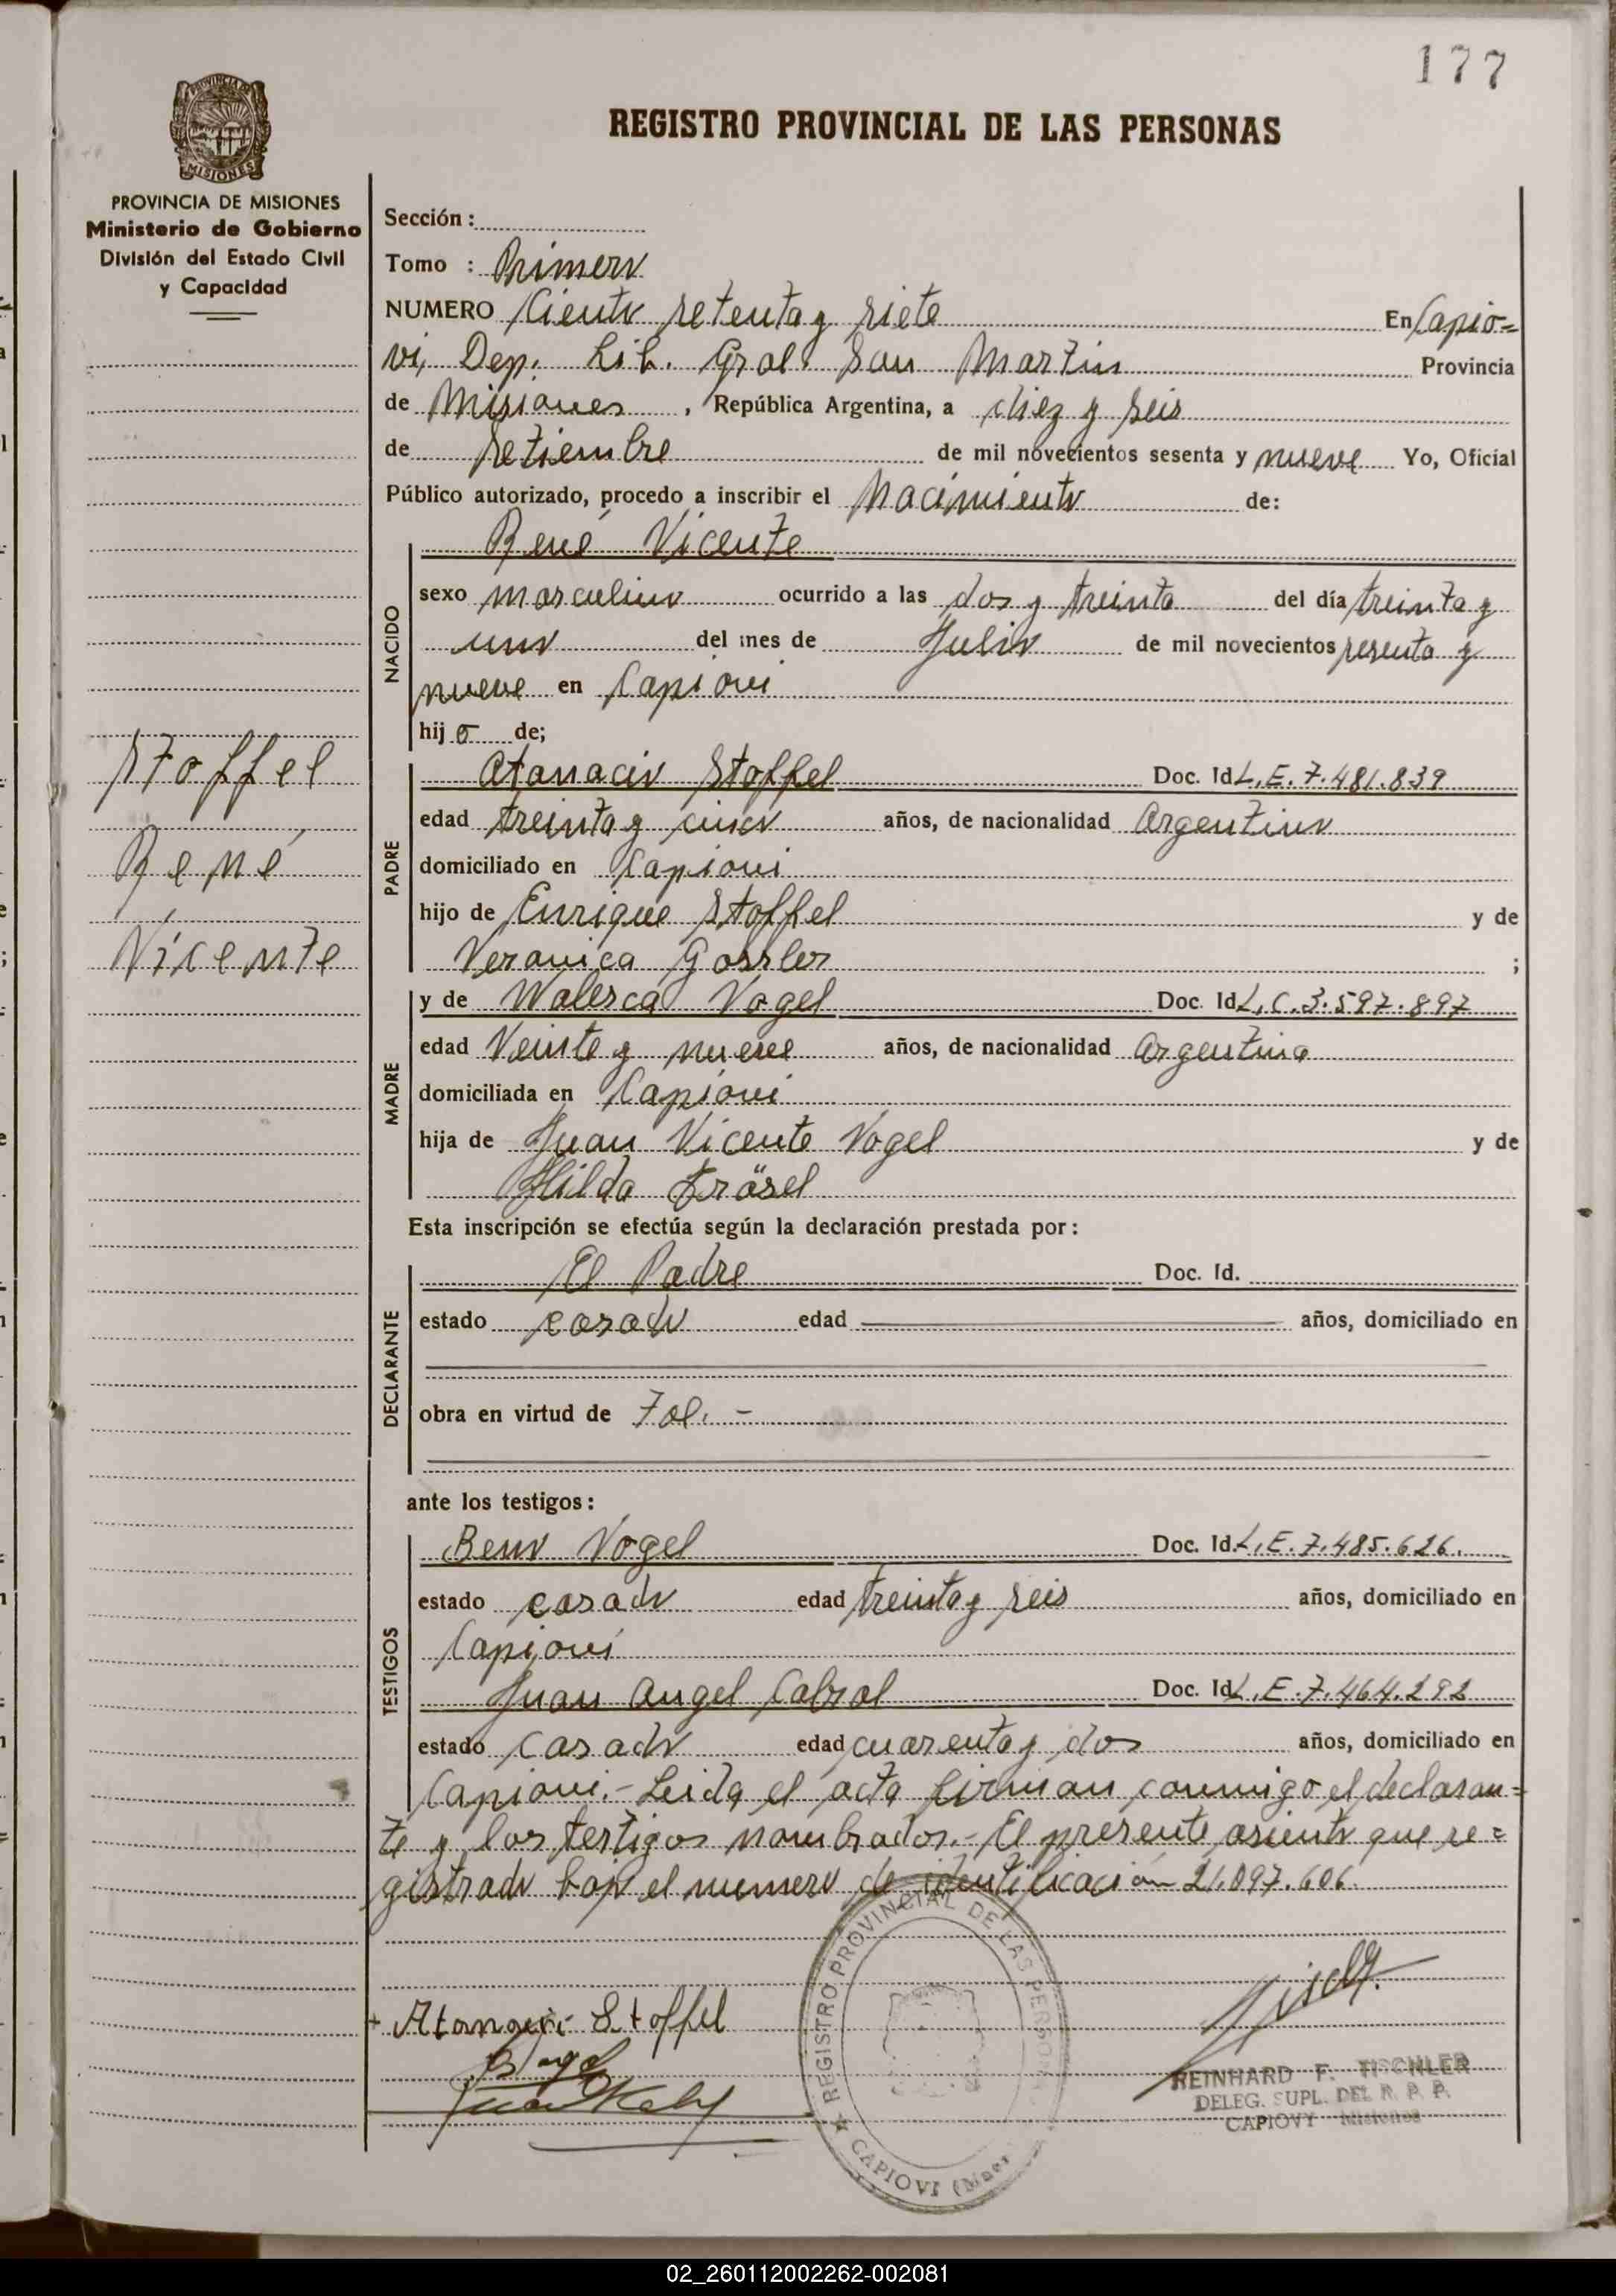 177
REGISTRO PROVINCIAL DE LAS PERSONAS
PROVINCIA DE MISIONES
Ministerio de Gobierno
División del Estado Civil
y Capacidad
Stoffel
René
Vicente
Sección :
Tomo : Primero
NUMERO Ciento setenta y siete En Capio=
vi, Dep. Lib. Gral. San Martin Provincia
de Misiones , República Argentina, a diez y seis
de setiembre de mil novecientos sesenta y nueve Yo, Oficial
Público autorizado, procedo a inscribir el Nacimiento de:
René Vicente
NACIDO
sexo masculino ocurrido a las dos y treinta del día treinta y
uno del mes de Julio de mil novecientos sesenta y
nueve en Capiovi
hij o de;
PADRE
Atanacio Stoffel Doc. Id L.E. 7.481.839
edad treinta y cinco años, de nacionalidad Argentino
domiciliado en Capiovi
hijo de Enrique Stoffel y de
Veronica Gossler ;
MADRE
y de Walesca Vogel Doc. Id L.C. 3.597.897
edad Veinte y nueve años, de nacionalidad Argentina
domiciliada en Capiovi
hija de Juan Vicente Vogel y de
Hilda Frösel
Esta inscripción se efectúa según la declaración prestada por :
DECLARANTE
El Padre Doc. Id.
estado casado edad años, domiciliado en
obra en virtud de Tal. -
ante los testigos :
TESTIGOS
Beno Vogel Doc. Id. L.E. 7.485.626.
estado casado edad treinta y seis años, domiciliado en
Capiovi
Juan Angel Cabral Doc. Id L.E. 7.464.292
estado casado edad cuarenta y dos años, domiciliado en
Capiovi.- Leida el acta firman conmigo el declaran=
te y los testigos nombrados.- El presente asiento que re=
gistrado bajo el numero de identificación 21.097.606.
+ Atanacio Stoffel
REGISTRO PROVINCIAL DE LAS PERSONAS
CAPIOVI
REINHARD F. TISCHLER
DELEG. SUPL. DEL R. P. P.
CAPIOVY Misiones
02_260112002262-002081